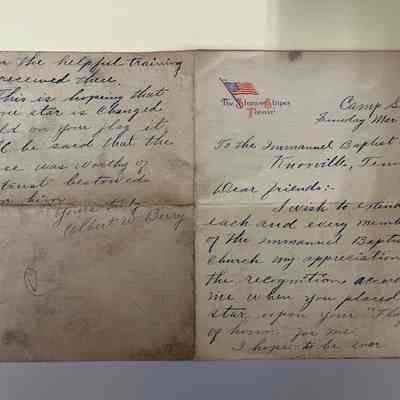 on the helpful training
received thee.
This is hoping that
star is changed
on your flag it
be said that the
was worthy of
trust bestowed
on him.
Yours truly
Albert W. Berry
The Stars and Stripes
Forever
Camp
Sunday Mar
To the Immanuel Baptist
Knoxville, Tenn
Dear friends:-
I wish to extend
each and every memb
of the Immanuel Baptis
Church my appreciation
the recognition accor
me when you placed
star upon your "Fla
of honor for me
I hope to be ever